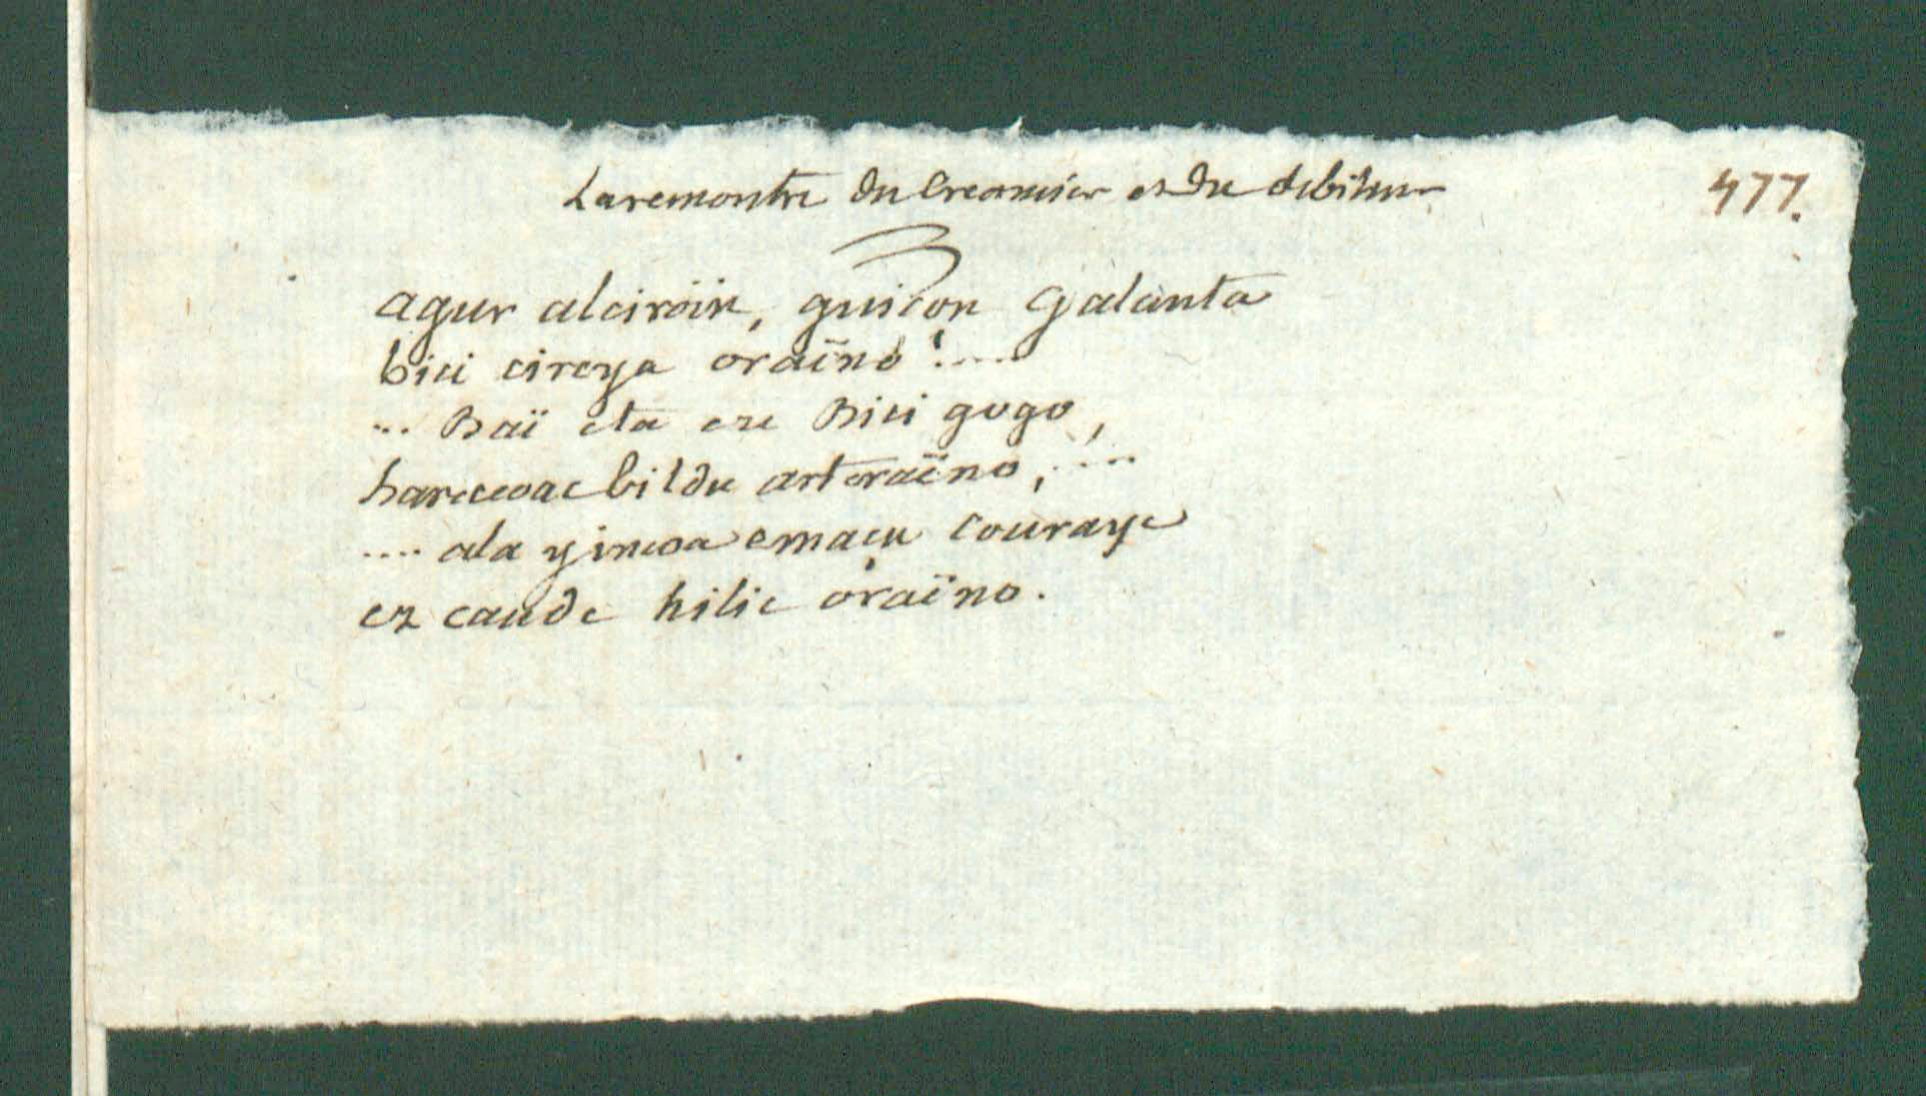 La remontre du Creancier et du debiteur
477.
agur alciroin, guicon galanta
bici cireya oraïno!....
... Baï eta ere Bici gogo,
harcecoac bildu arteraïno,....
.... ala yincoa emaçu couraye
ez caude hilic oraïno.